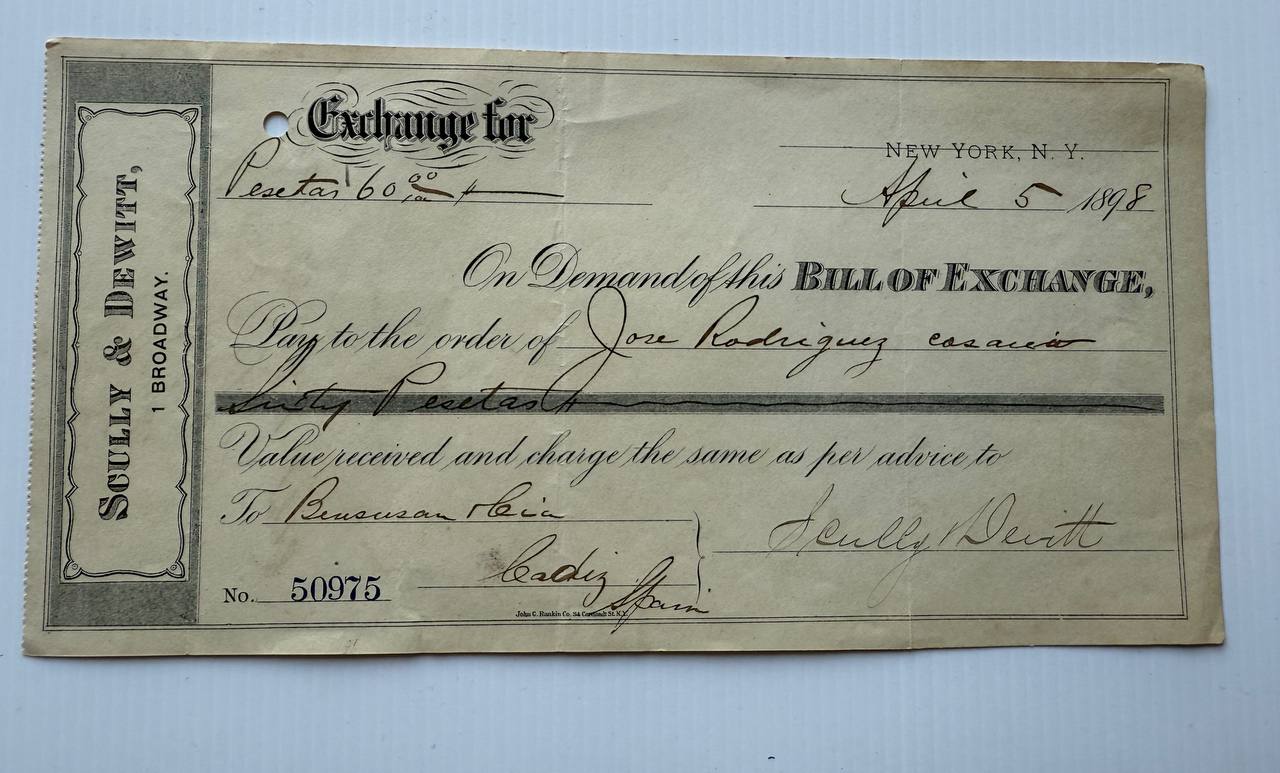 SCULLY & DEWITT,
1 BROADWAY.
Exchange for
Pesetas 60 00/100
NEW YORK, N. Y.
April 5 1898
On Demand of this BILL OF EXCHANGE,
Pay to the order of Jose Rodriguez
Sixty Pesetas
Value received and charge the same as per advice to
To Bensusan & Cia
Scully & Dewitt
Cadiz
Spain
No. 50975
John C. Rankin Co. 34 Cortlandt St. N.Y.